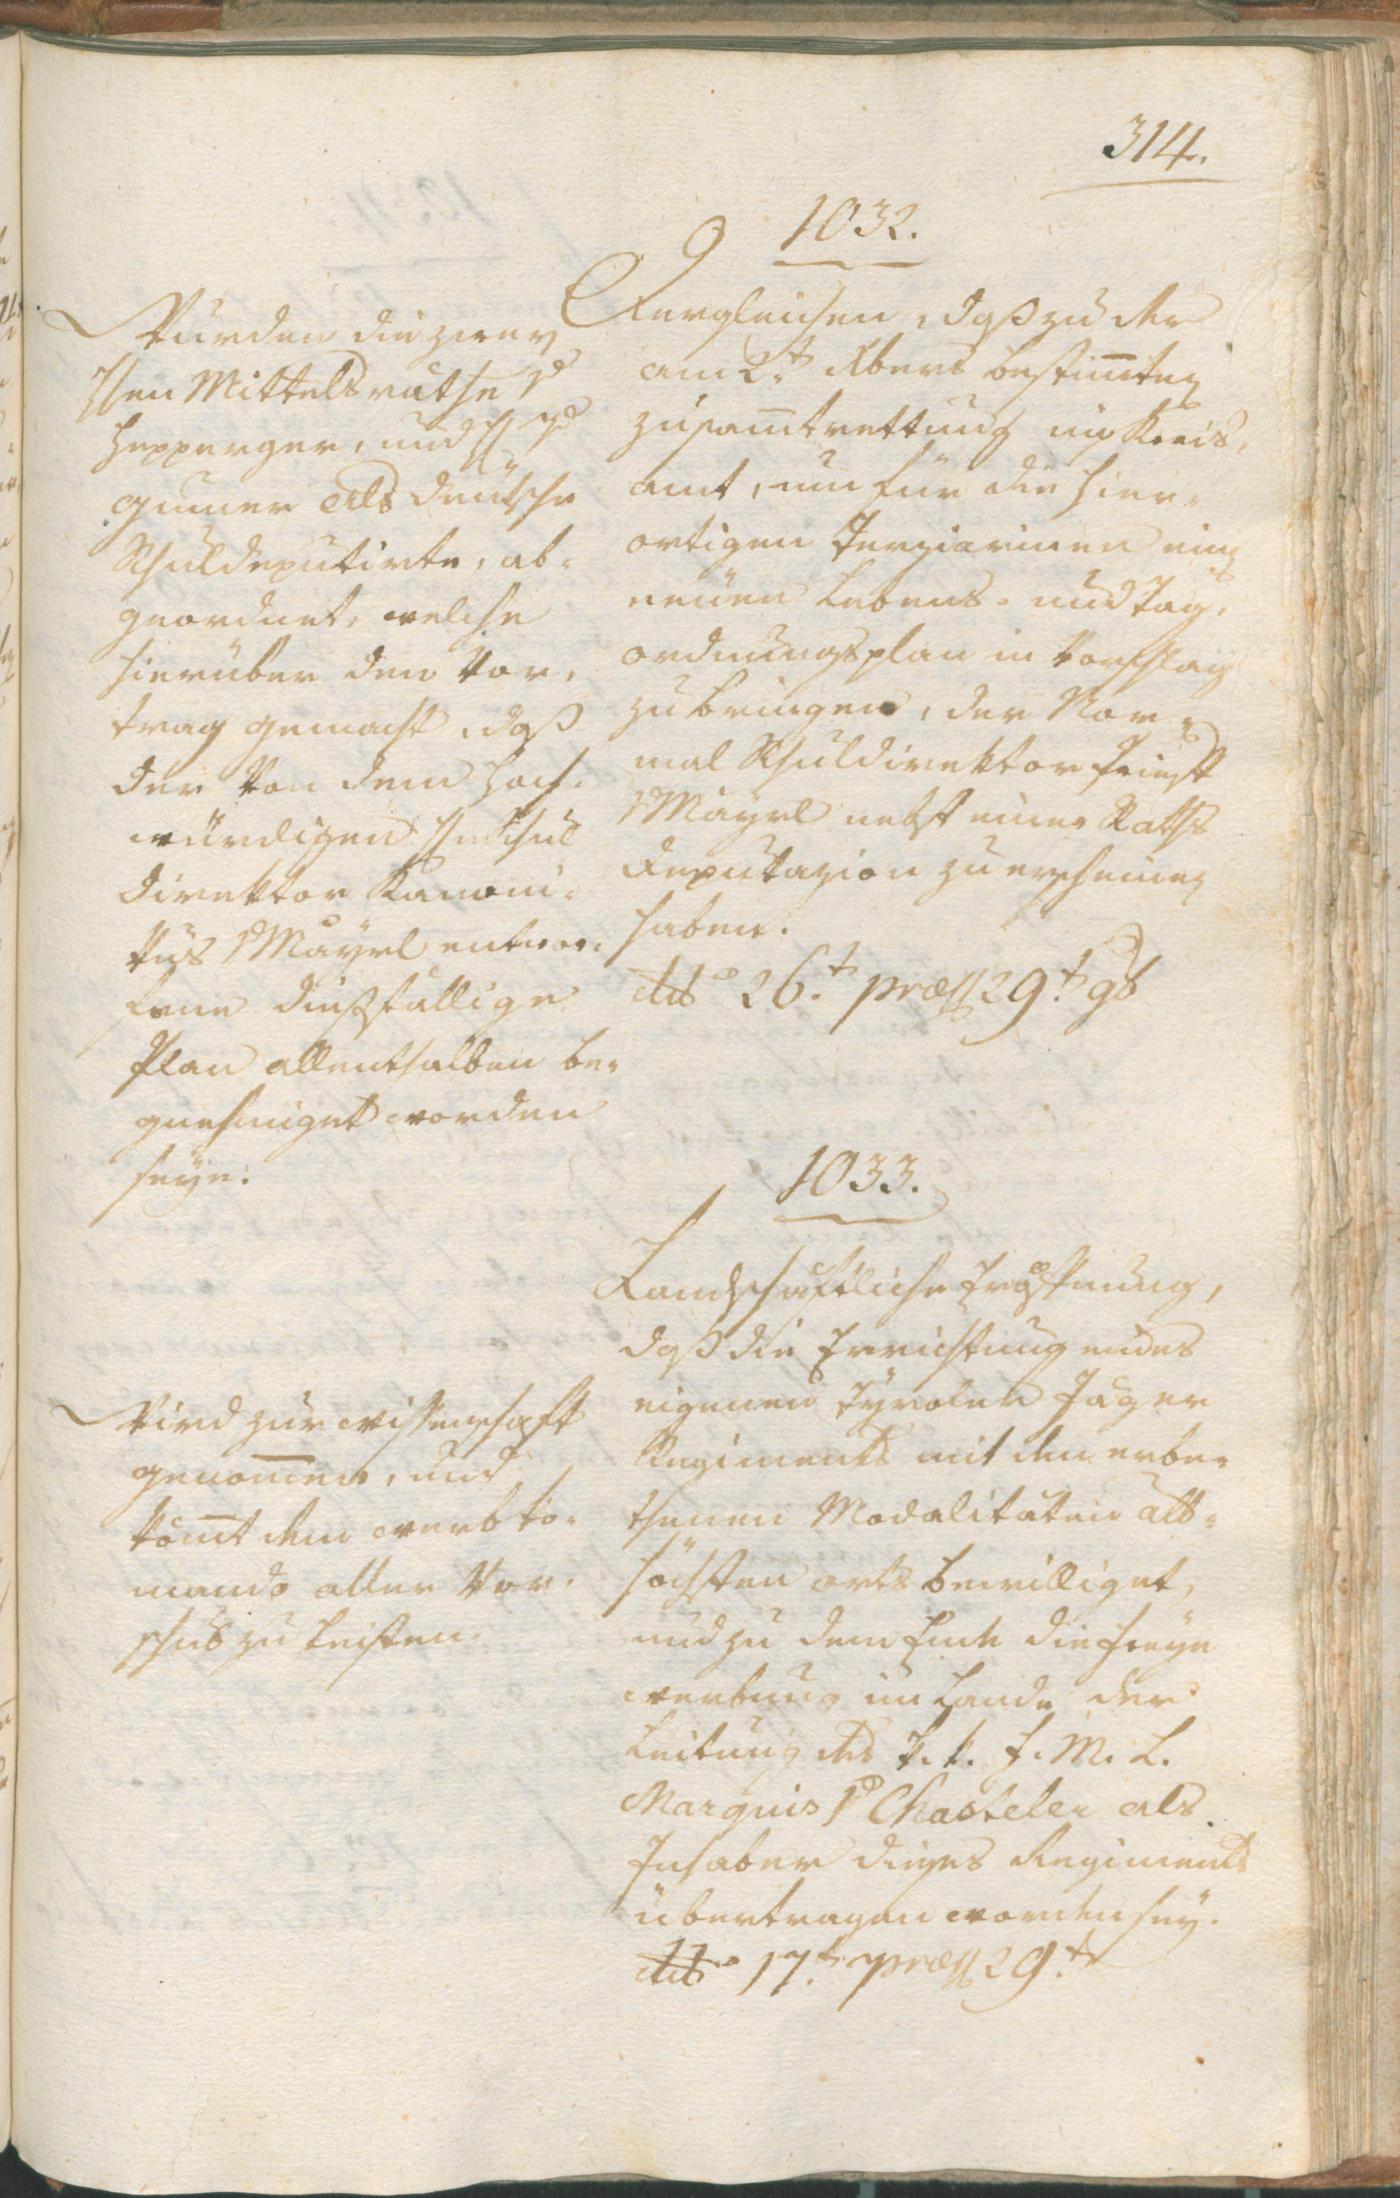 314.
1032.
Dergleichen, daß zu der
am 2.t Xbers bestimten
zusamtrettung im Kreis-
amt, um für die hier-
ortigen Terziarinen ein
neüen Lebens- und Tag-
ordnungsplan in Vorschlag
zu bringen, der Nor-
mal Schuldirektor Priest
v Mayrl nebst einer Raths
Deputazion zu erscheinen
haben.
ddo 26.t præs 29.t 9b
Wurden die zwey
Hen Mittelsrathe v
Hepperger, und H v
gumer als deütsche
Schuldeputirte, ab-
geordnet, welche
hierüber den Vor-
trag gemacht, daß
der von dem Hoch-
würdigen Hn Schul
direktor Kanoni-
kus v Mayrl entwor-
fene dießfällige
Plan allenthalben be-
gnehmiget worden
seye.
1033.
Landschaftliche Eröffnung,
daß die Errichtung eines
eigenen Tyroler Jäger
Regiments mit den erbe-
thenen Modalitäten all-
höchsten orts bewilliget,
und zu dem Ende die freye
werbung im Lande der
Leitung des k. k. F. M. L.
Marquis v Chasteler als
Inhaber dieses Regiments
übertragen worden sey.
ddo 17.t præs 29.t
Wird zur wissenschaft
genomen, und
kömt dem werb ko-
mando aller Vor-
schub zu leisten.